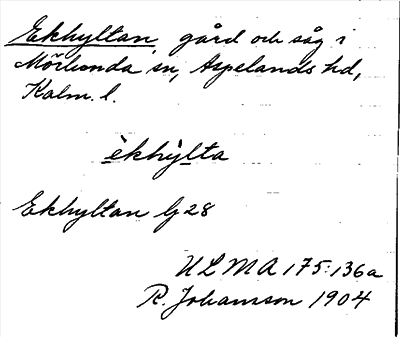 Ekhyltan, gård och såg i
Mörlunda sn, Aspelands hd,
Kalm. l.
èkhỳlta
Ekhyltan Lj 28
ULMA 175:136a
R. Johansson 1904